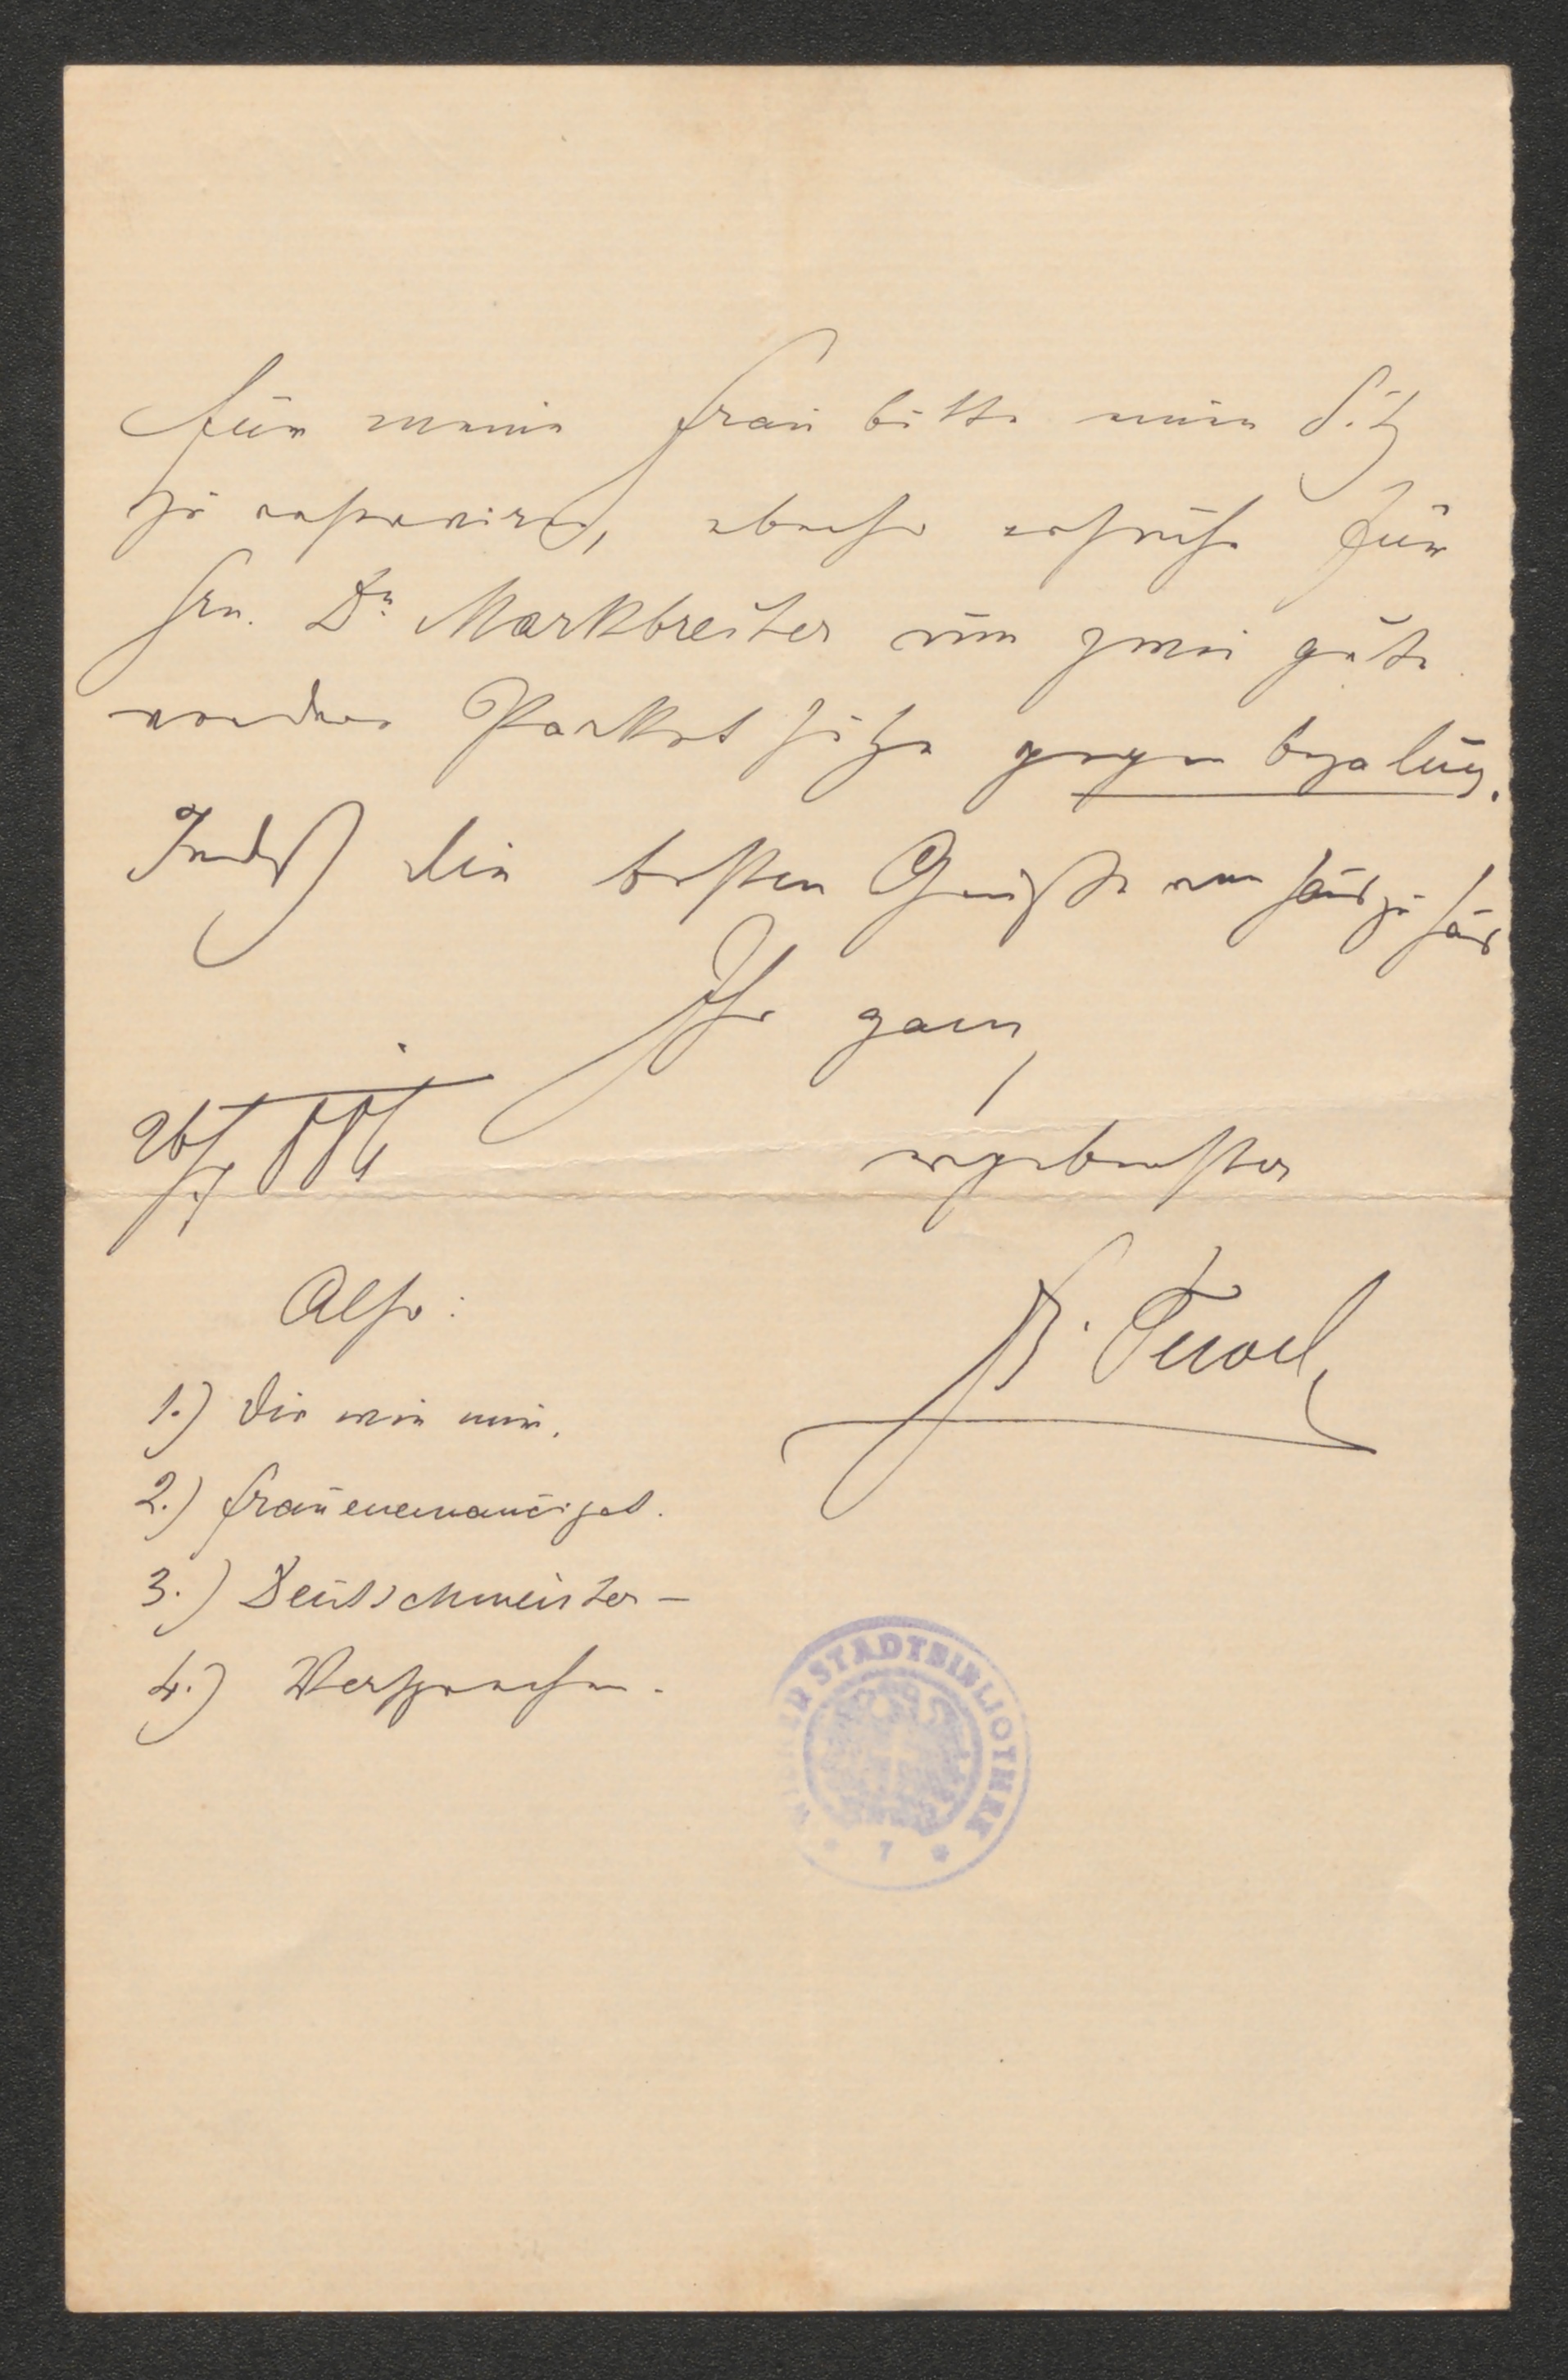 Für meine Frau bitte einen Sitz
zu reserviren, ebenso ersuche für
Hrn. Dr. Markbreiter um zwei gute
vordere Parketsitze gegen Bezalung.
Indeß die besten Grüße von Haus zu Haus
Ihr ganz
ergebenster
26/ 886
Also:
1.) Die wie mir.
2.) Frauenemancipat.
3.) Deutschmeister –
4.) Versprechen.
WIENER STADTBIBLIOTHEK
7